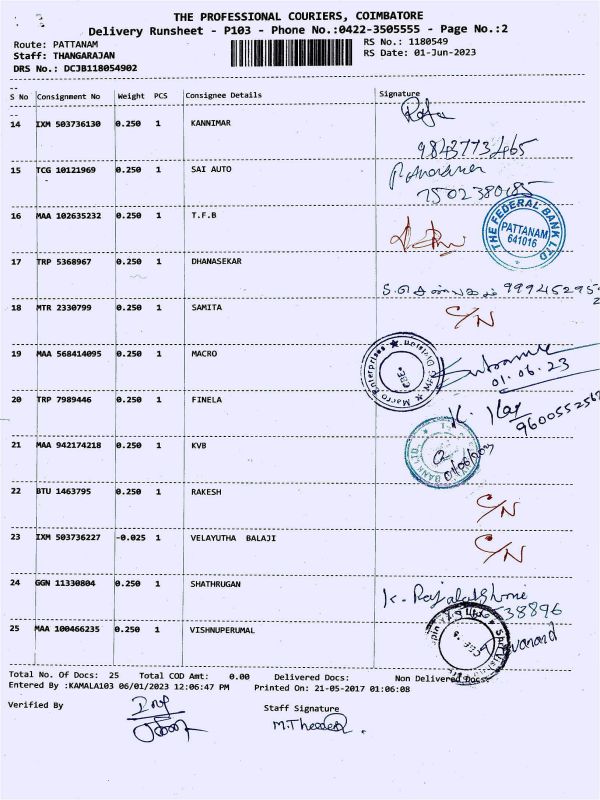 THE PROFESSIONAL COURIERS, COIMBATORE
Delivery Runsheet - P103 - Phone No.:0422-3505555 - Page No.:2
Route: PATTANAM RS No.: 1180549
Staff: THANGARAJAN RS Date: 01-Jun-2023
DRS No.: DCJB118054902
S No Consignment No Weight PCS Consignee Details Signature
14 IXM 503736130 0.250 1 KANNIMAR
9843773465
15 TCG 10121969 0.250 1 SAI AUTO
7502380185
16 MAA 102635232 0.250 1 T.F.B THE FEDERAL BANK LTD PATTANAM 641016
17 TRP 5368967 0.250 1 DHANASEKAR
18 MTR 2330799 0.250 1 SAMITA C/N
19 MAA 568414095 0.250 1 MACRO Macro Enterprises
01.06.23
20 TRP 7989446 0.250 1 FINELA
21 MAA 942174218 0.250 1 KVB
22 BTU 1463795 0.250 1 RAKESH C/N
23 IXM 503736227 -0.025 1 VELAYUTHA BALAJI C/N
24 GGN 11330804 0.250 1 SHATHRUGAN
38896
25 MAA 100466235 0.250 1 VISHNUPERUMAL
Total No. Of Docs: 25 Total COD Amt: 0.00 Delivered Docs: Non Delivered Docs:
Entered By :KAMALA103 06/01/2023 12:06:47 PM Printed On: 21-05-2017 01:06:08
Verified By Staff Signature